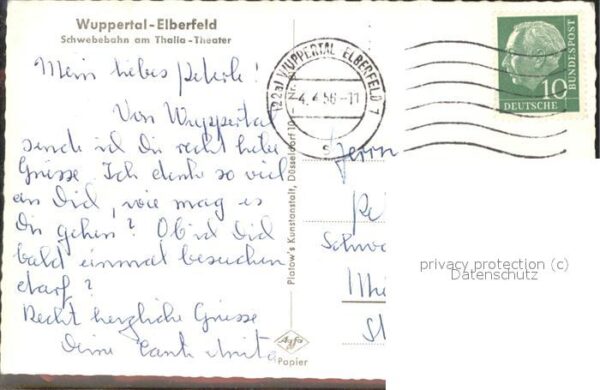 Wuppertal-Elberfeld
Schwebebahn am Thalia-Theater
Mein liebes Peterle!
Von Wuppertal
sende ich Dir recht liebe
Grüsse. Ich denke so viel
an Dich, wie mag es
Dir gehen? Ob ich Dich
bald einmal besuchen
darf?
Recht herzliche Grüsse
Deine Tante Anita
(22a) WUPPERTAL-ELBERFELD 1
-4. 4. 56-11
s
10
DEUTSCHE
BUNDESPOST
Plalow's Kunstanstalt, Düsseldorf 10 - Nr.
Agfa
Papier
Herrn
Pe
Schwa
St
privacy protection (c)
Datenschutz